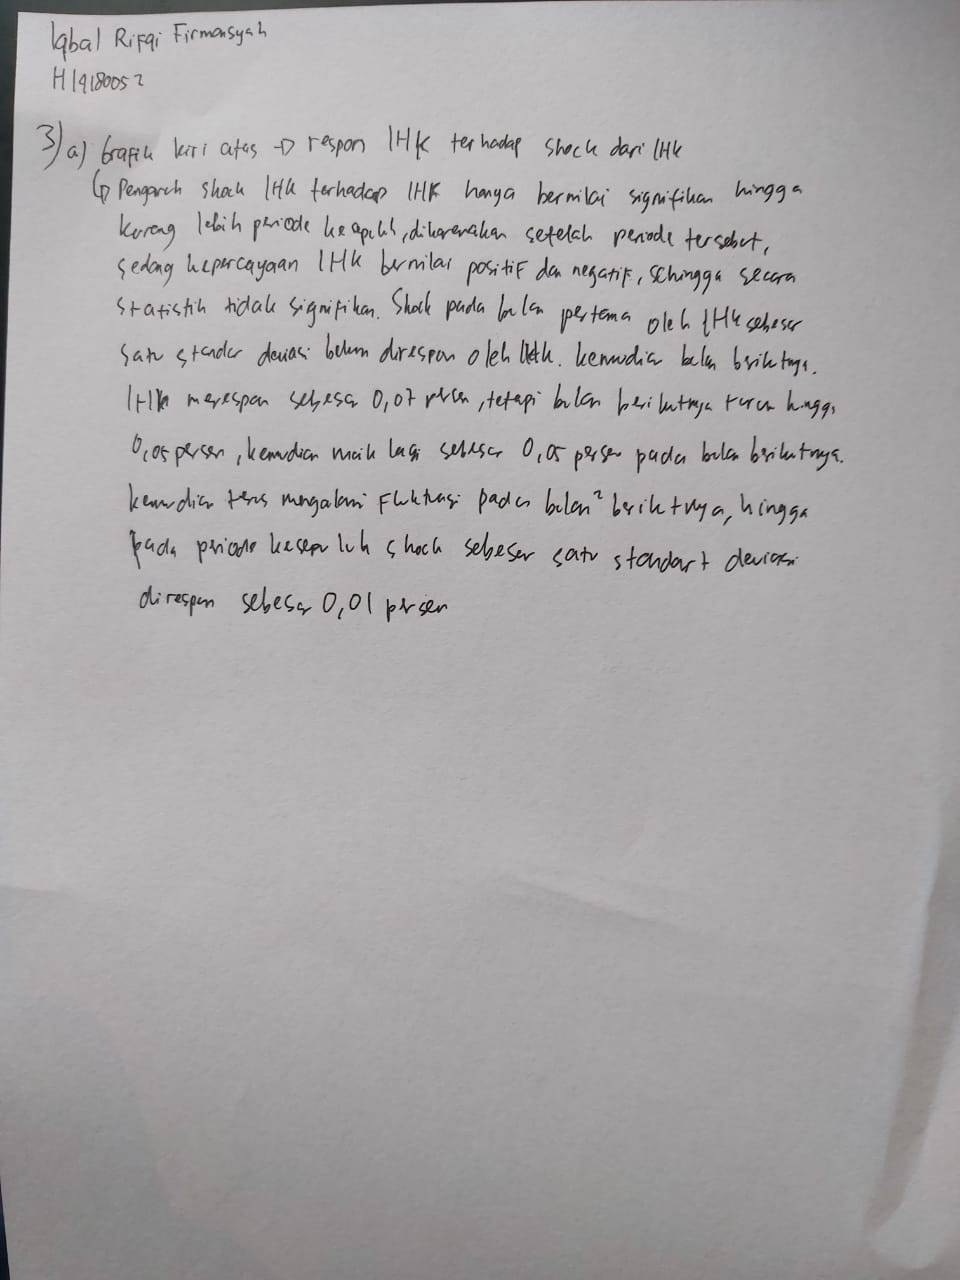 Iqbal Rifqi Firmansyah
H1918005 2
3) a) Grafik kiri atas → respon IHK terhadap shock dari IHK
↳ Pengaruh shock IHK terhadap IHK hanya bernilai signifikan hingga
kurang lebih periode ke, dikarenakan setelah periode tersebut,
sedang kepercayaan IHK bernilai positif dan negatif, sehingga secara
statistik tidak signifikan. Shock pada bulan pertama oleh IHK sebesar
satu standar deviasi belum direspon oleh IHK. kemudian bulan berikutnya.
IHK merespon sebesar 0,07 persen, tetapi bulan berikutnya turun hingga
0,05 persen, kemudian naik lagi sebesar 0,05 persen pada bulan berikutnya.
kemudian terus mengalami Fluktuasi pada bulan² berikutnya, hingga
pada periode kesepuluh shock sebesar satu standart deviasi
direspon sebesar 0,01 persen